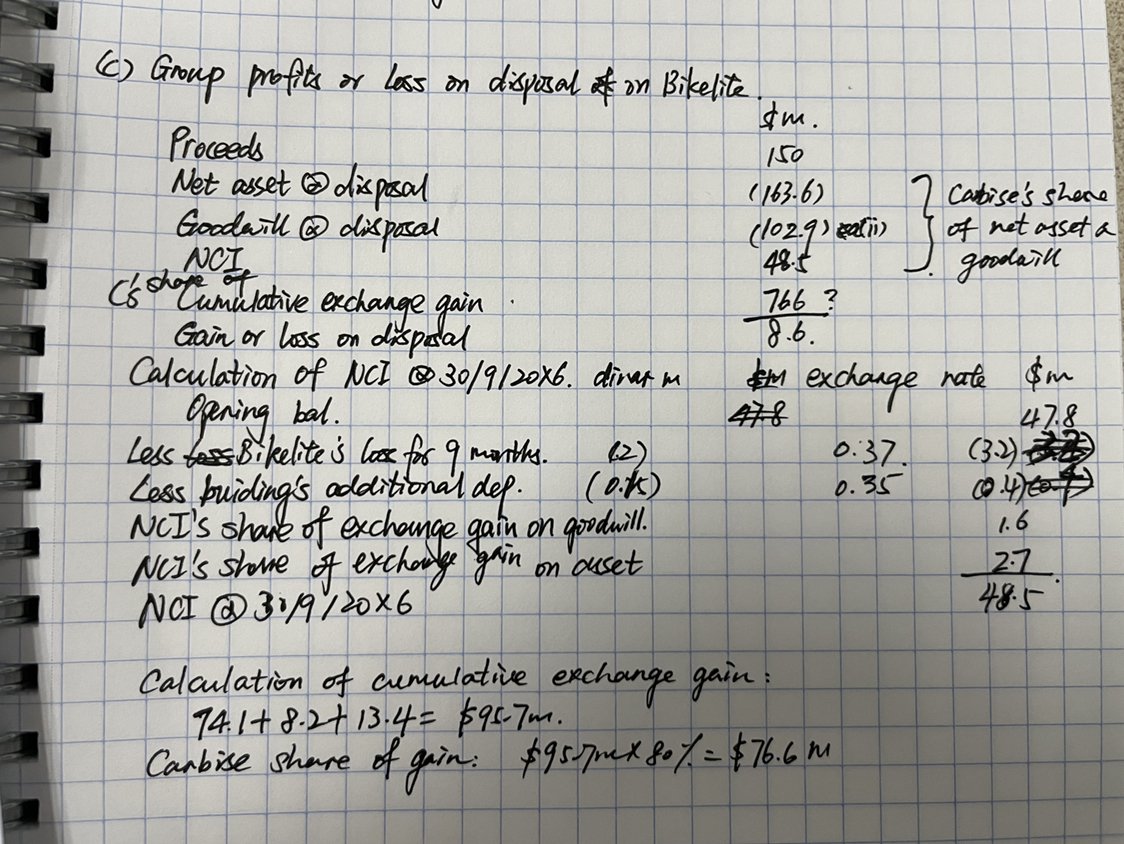 (c) Group profits or loss on disposal on Bikelite.
$m.
Proceeds 150
Net asset @ disposal (163.6)
Goodwill @ disposal (102.9) (ii)
NCI 48.5
} Carbise's share
of net asset a
goodwill
C's share of Cumulative exchange gain 766 ?
Gain or loss on disposal 8.6.
Calculation of NCI @ 30/9/20X6. dinar m exchange rate $m
Opening bal. 47.8 47.8
Less Bikelite's loss for 9 months. (.2) 0.37. (3.2)
Less buiding's additional dep. 0.35 (0.4)
NCI's share of exchange gain on goodwill. 1.6
NCI's share of exchange gain on asset 2.7
NCI @ 30/9/20X6 48.5
Calculation of cumulative exchange gain:
74.1 + 8.2 + 13.4 = $95.7m.
Carbise share of gain: $95.7m x 80% = $76.6 m